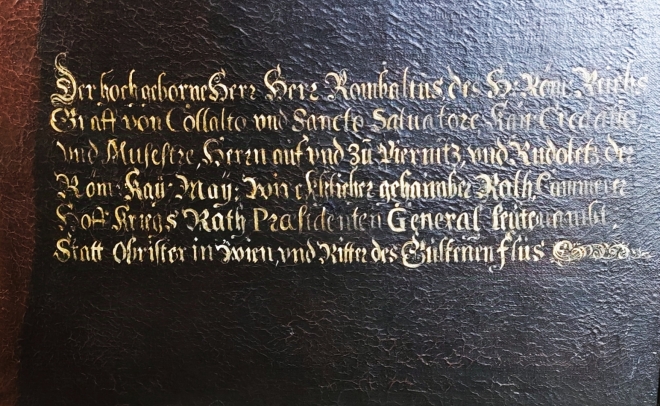 Der hoch geborne Herr Herr Rombaltus des H. Röm. Reichs
Graff von Collalto vnd Sancto Salvatore, Raÿ Credatio
vnd Musestre, Herrn auf vnd Zu Piernitz, vnd Rudoletz der
Röm: Kaÿ: Maÿ: Würckhlicher gehaimber Rath, Cammerer
Hoff Kriegs Rath Præsidenten General leütenambt,
Statt Obrister in Wien, vnd Ritter des Gulttenen flüs